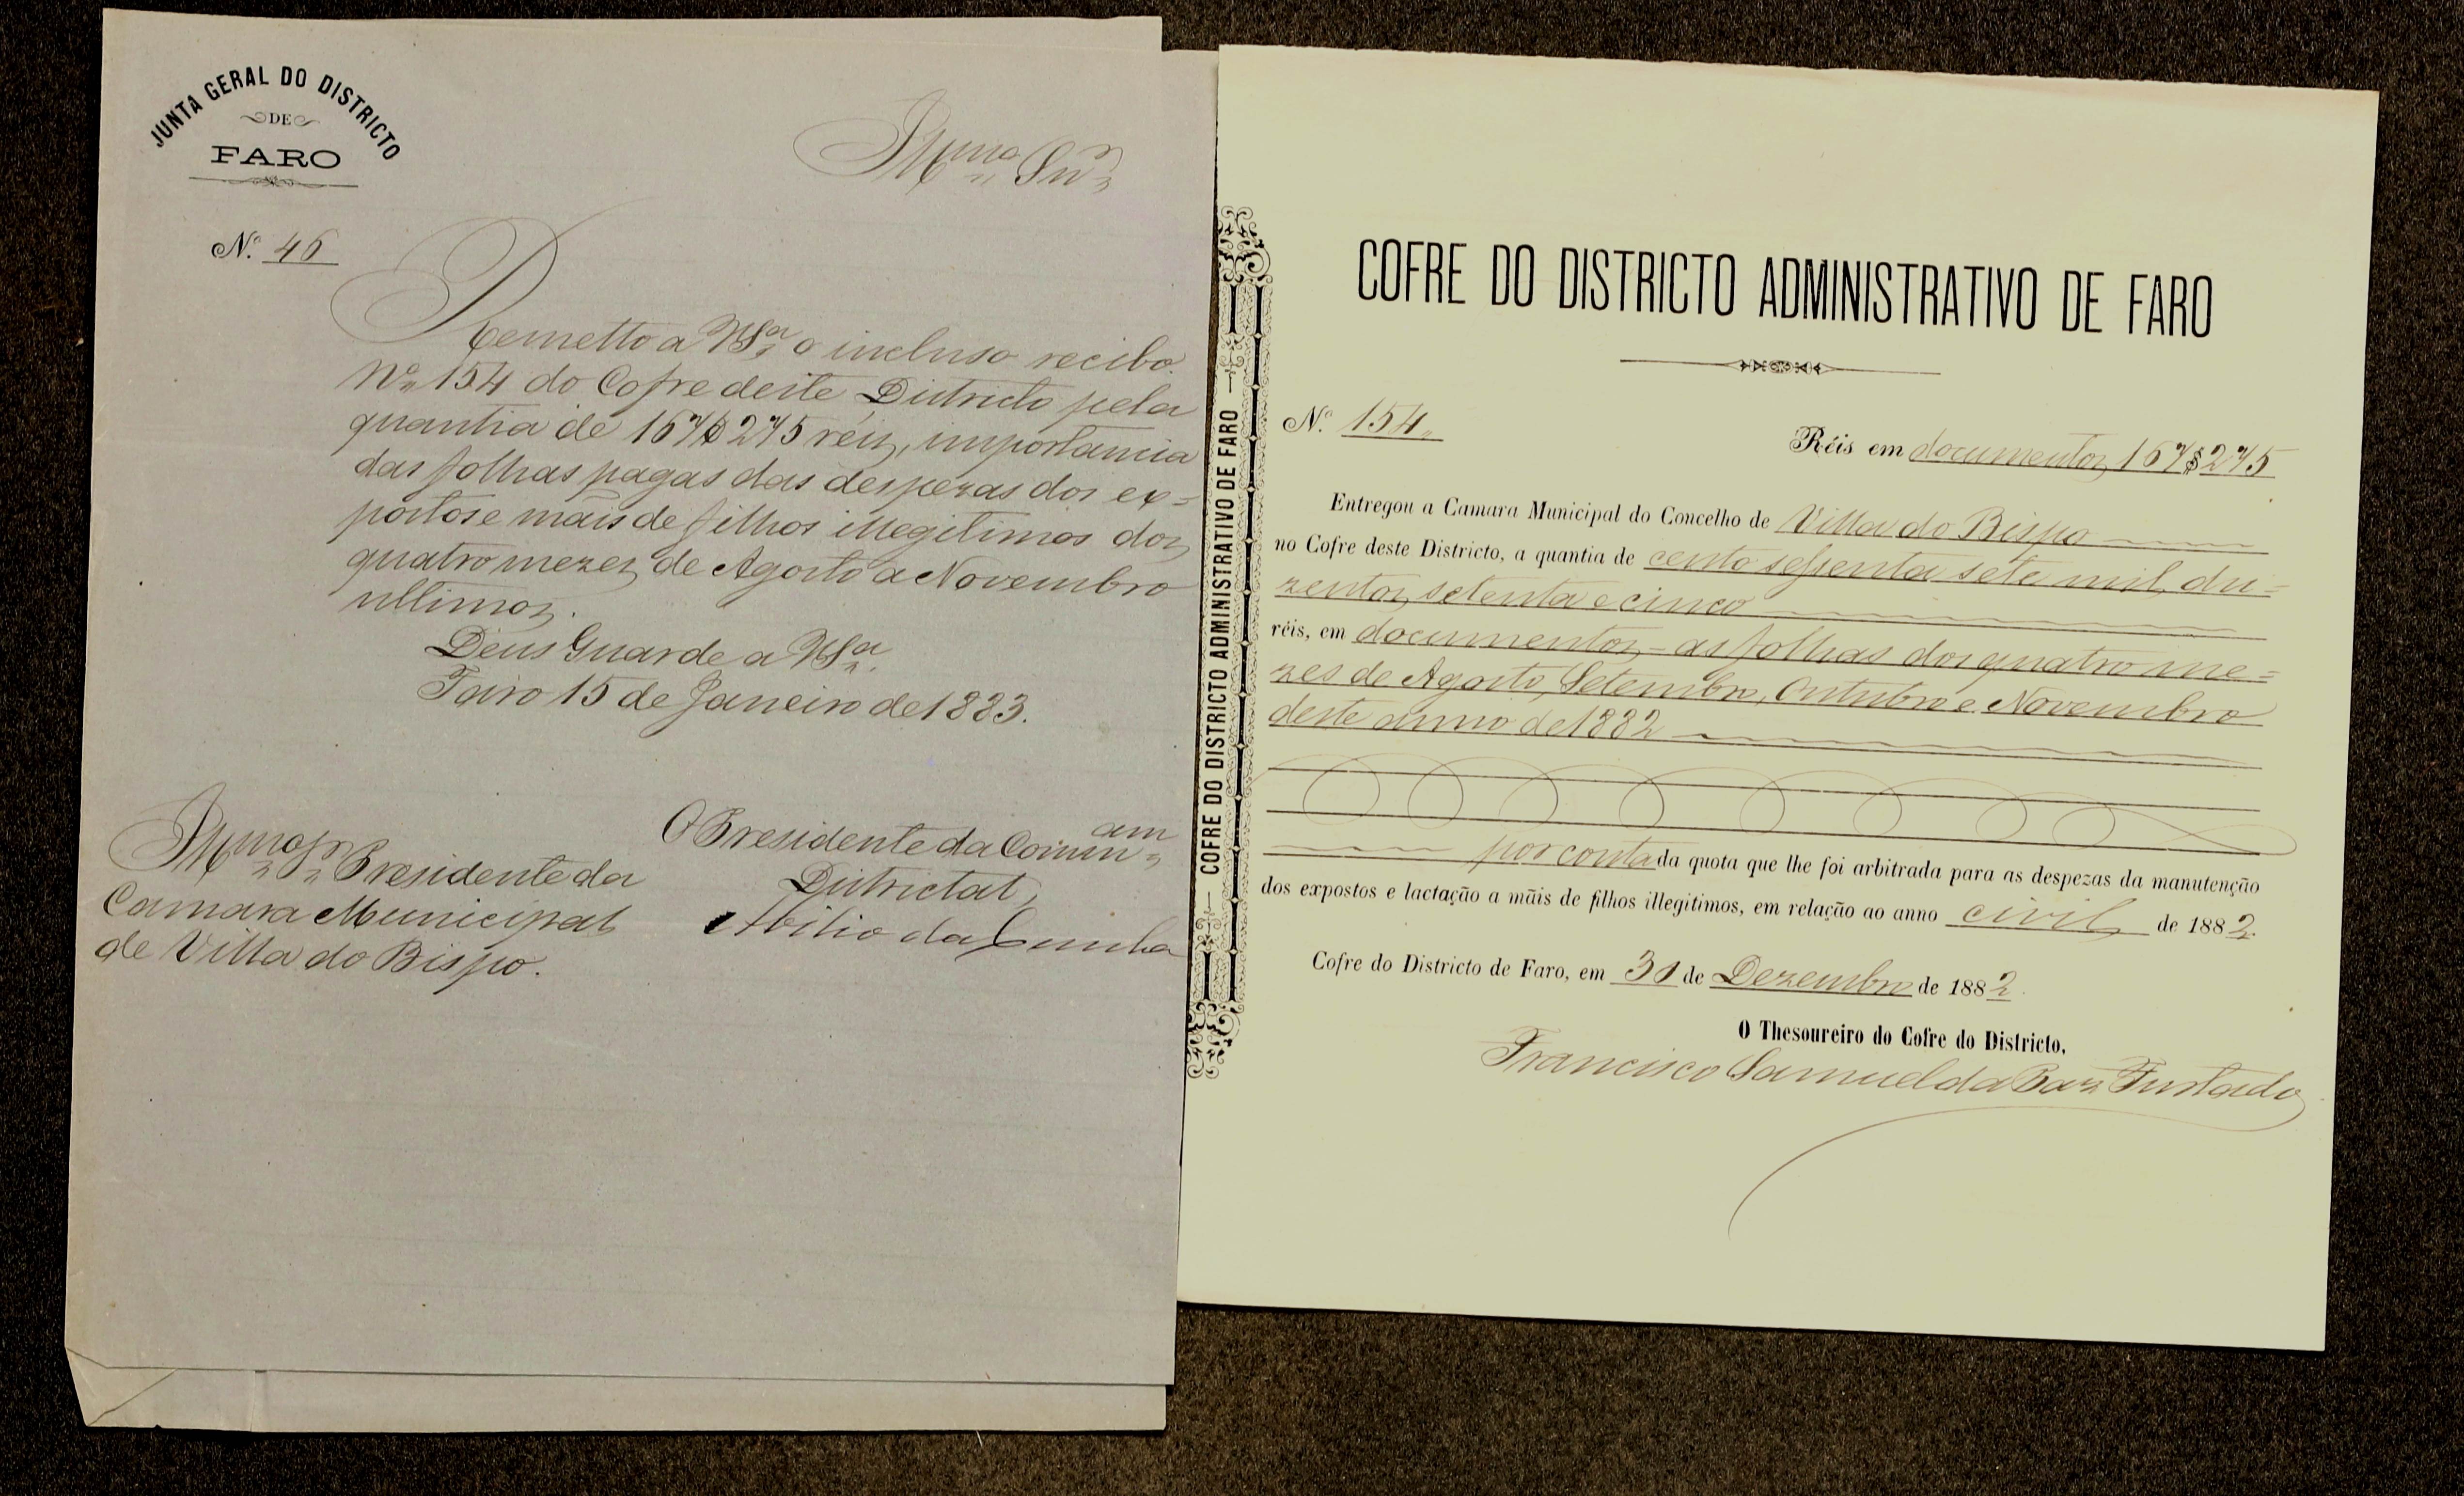 JUNTA GERAL DO DISTRICTO
DE
FARO
Illmo Snr
N.º 46
Remetto a VSa o incluso recibo
Nº 154 do Cofre deste Districto pela
quantia de 167$275 réis, importancia
das folhas pagas das despezas dos ex=
postos e mãis de filhos illegitimos dos
quatro mezes de Agosto a Novembro
ultimos.
Deus Guarde a VSa
Faro 15 de Janeiro de 1883.
Illmo Sr Presidente da
Camara Municipal
de Villa do Bispo.
O Presidente da Commam
Districtal,
Abilio da Cunha
COFRE DO DISTRICTO ADMINISTRATIVO DE FARO
COFRE DO DISTRICTO ADMINISTRATIVO DE FARO
N.º 154
Réis em documentos 167$275
Entregou a Camara Municipal do Concelho de Villa do Bispo
no Cofre deste Districto, a quantia de cento sessenta sete mil du=
zentos setenta e cinco
réis, em documentos - as folhas dos quatro me=
zes de Agosto, Setembro, Outubro e Novembro
deste anno de 1882
por conta da quota que lhe foi arbitrada para as despezas da manutenção
dos expostos e lactação a mãis de filhos illegitimos, em relação ao anno civil de 1882.
Cofre do Districto de Faro, em 30 de Dezembro de 1882.
O Thesoureiro do Cofre do Districto,
Francisco Samuel da Paz Furtado